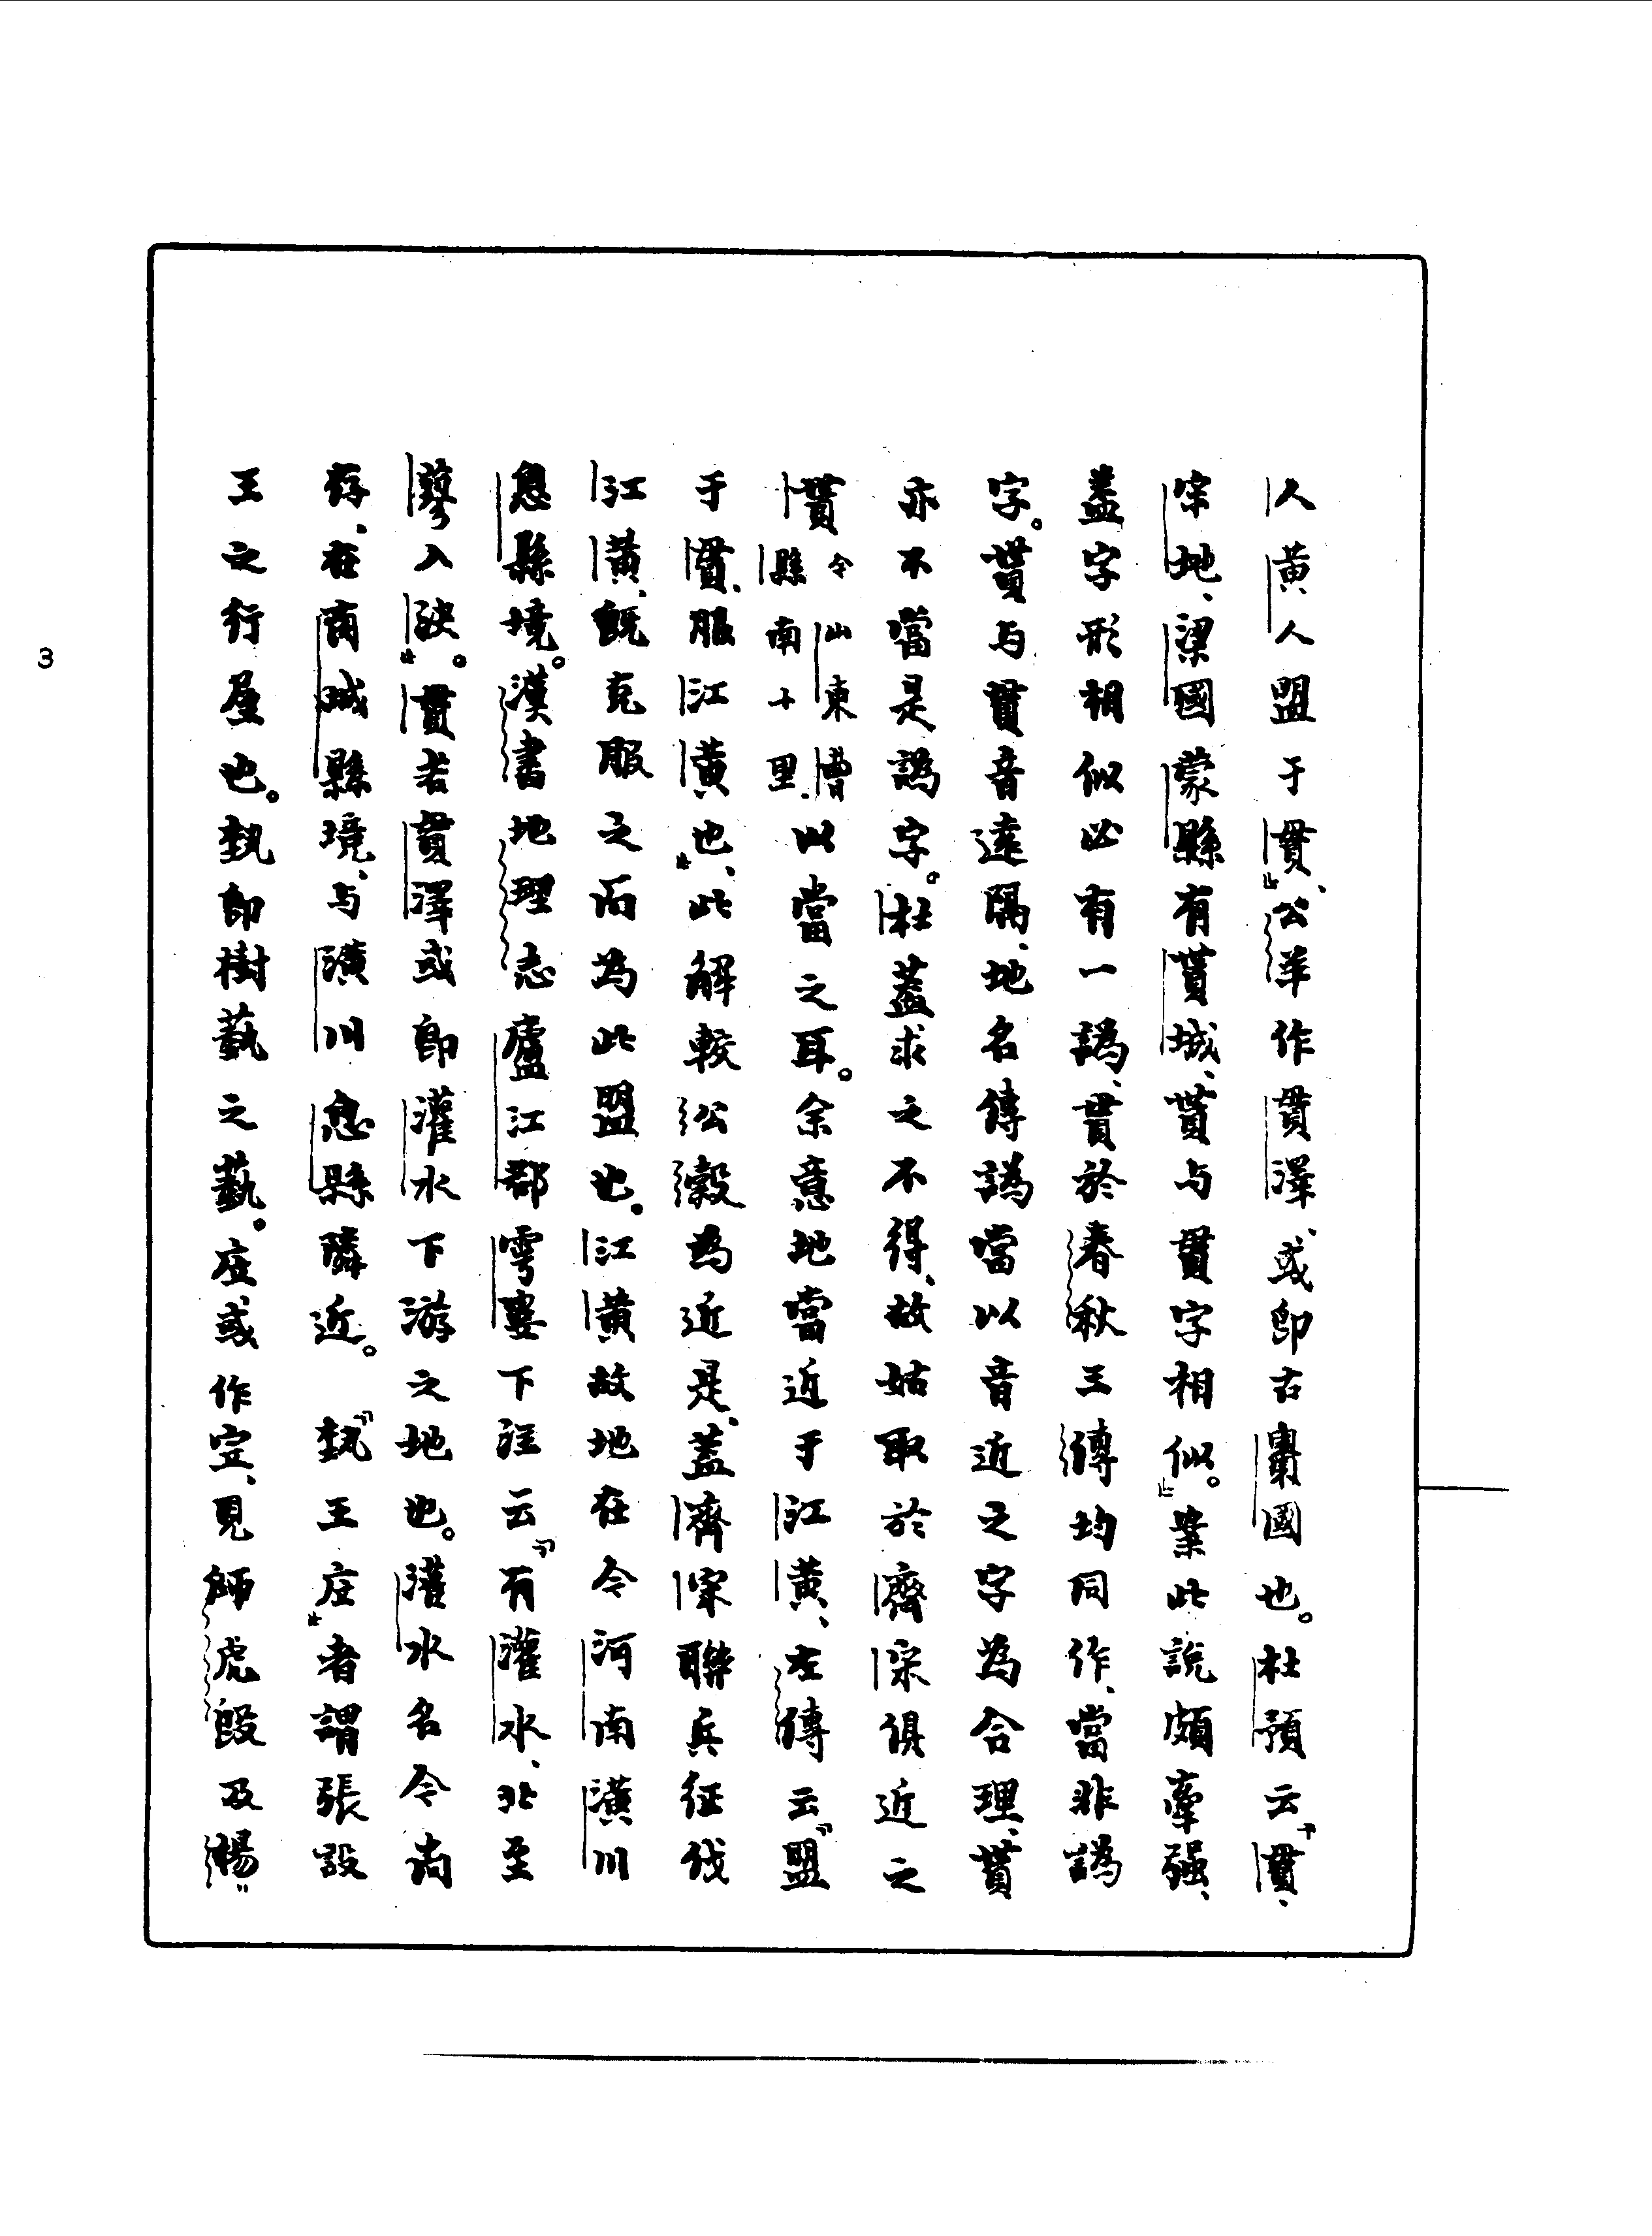 人黄人盟于貫』、公羊作貫澤、或即古𢍰國也。杜預云『貫、
宋地、梁國蒙縣有貰城、貰与貫字相似。』案此說頗牽强、
蓋字形相似必有一譌、貫於春秋三傳均同作、當非譌
字。貰与貫音遠隔、地名傳譌當以音近之字為合理、貰
亦不當是譌字。杜蓋求之不得、故姑取於齊宋俱近之
貰今山東曹縣南十里、以當之耳。余意地當近于江黄、左傳云『盟
于貫、服江黄也』、此解較公穀為近是、蓋齊宋聯兵征伐
江黄、既克服之而為此盟也。江黄故地在今河南潢川
息縣境。漢書地理志廬江郡雩婁下注云『有灌水、北至
蓼入決。』貫者貫澤或即灌水下游之地也。灌水名今尚
存、在商城縣境、与潢川息縣隣近。『埶王𡉚』者謂張設
王之行屋也。埶即樹蓺之蓺。𡉚或作㝉、見師虎𣪘及楊〃
3